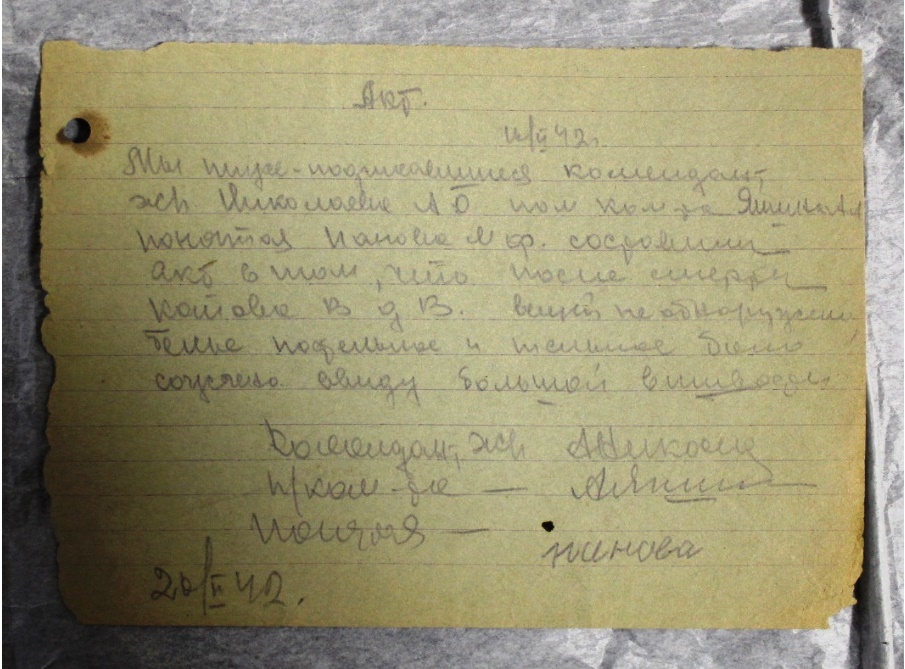 Акт.
/II 42г.
Мы ниже-подписавшиеся комендант,
жсk Николаева А О пом ком-та
понятая Панова М Ф. составили
акт в том, что после смерти
Котова В д В. вещей не обнаружено
белье постельное и тельное было
сожжено ввиду большой вшивости
Комендант, жсk
п/ком-та —
Понятая —
панова
20/II 42.